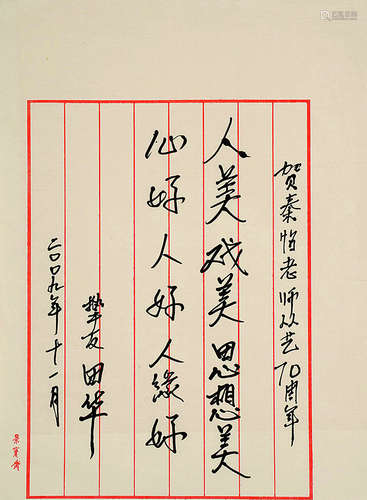 贺秦怡老师从艺70周年
人美戏美思想美
心好人好人缘好
挚友田华
二〇〇九年十一月
荣宝斋